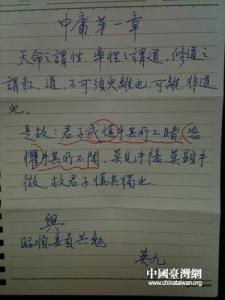 中庸第一章
天命之謂性，率性之謂道，修道之
謂教。道，不可須臾離也，可離，非道
也。
是故：君子戒慎乎其所不睹，恐
懼乎其所不聞，莫見乎隱，莫顯乎
微，故君子慎其獨也。
與
昭順委員共勉
英九
中國臺灣網
www.chinataiwan.org